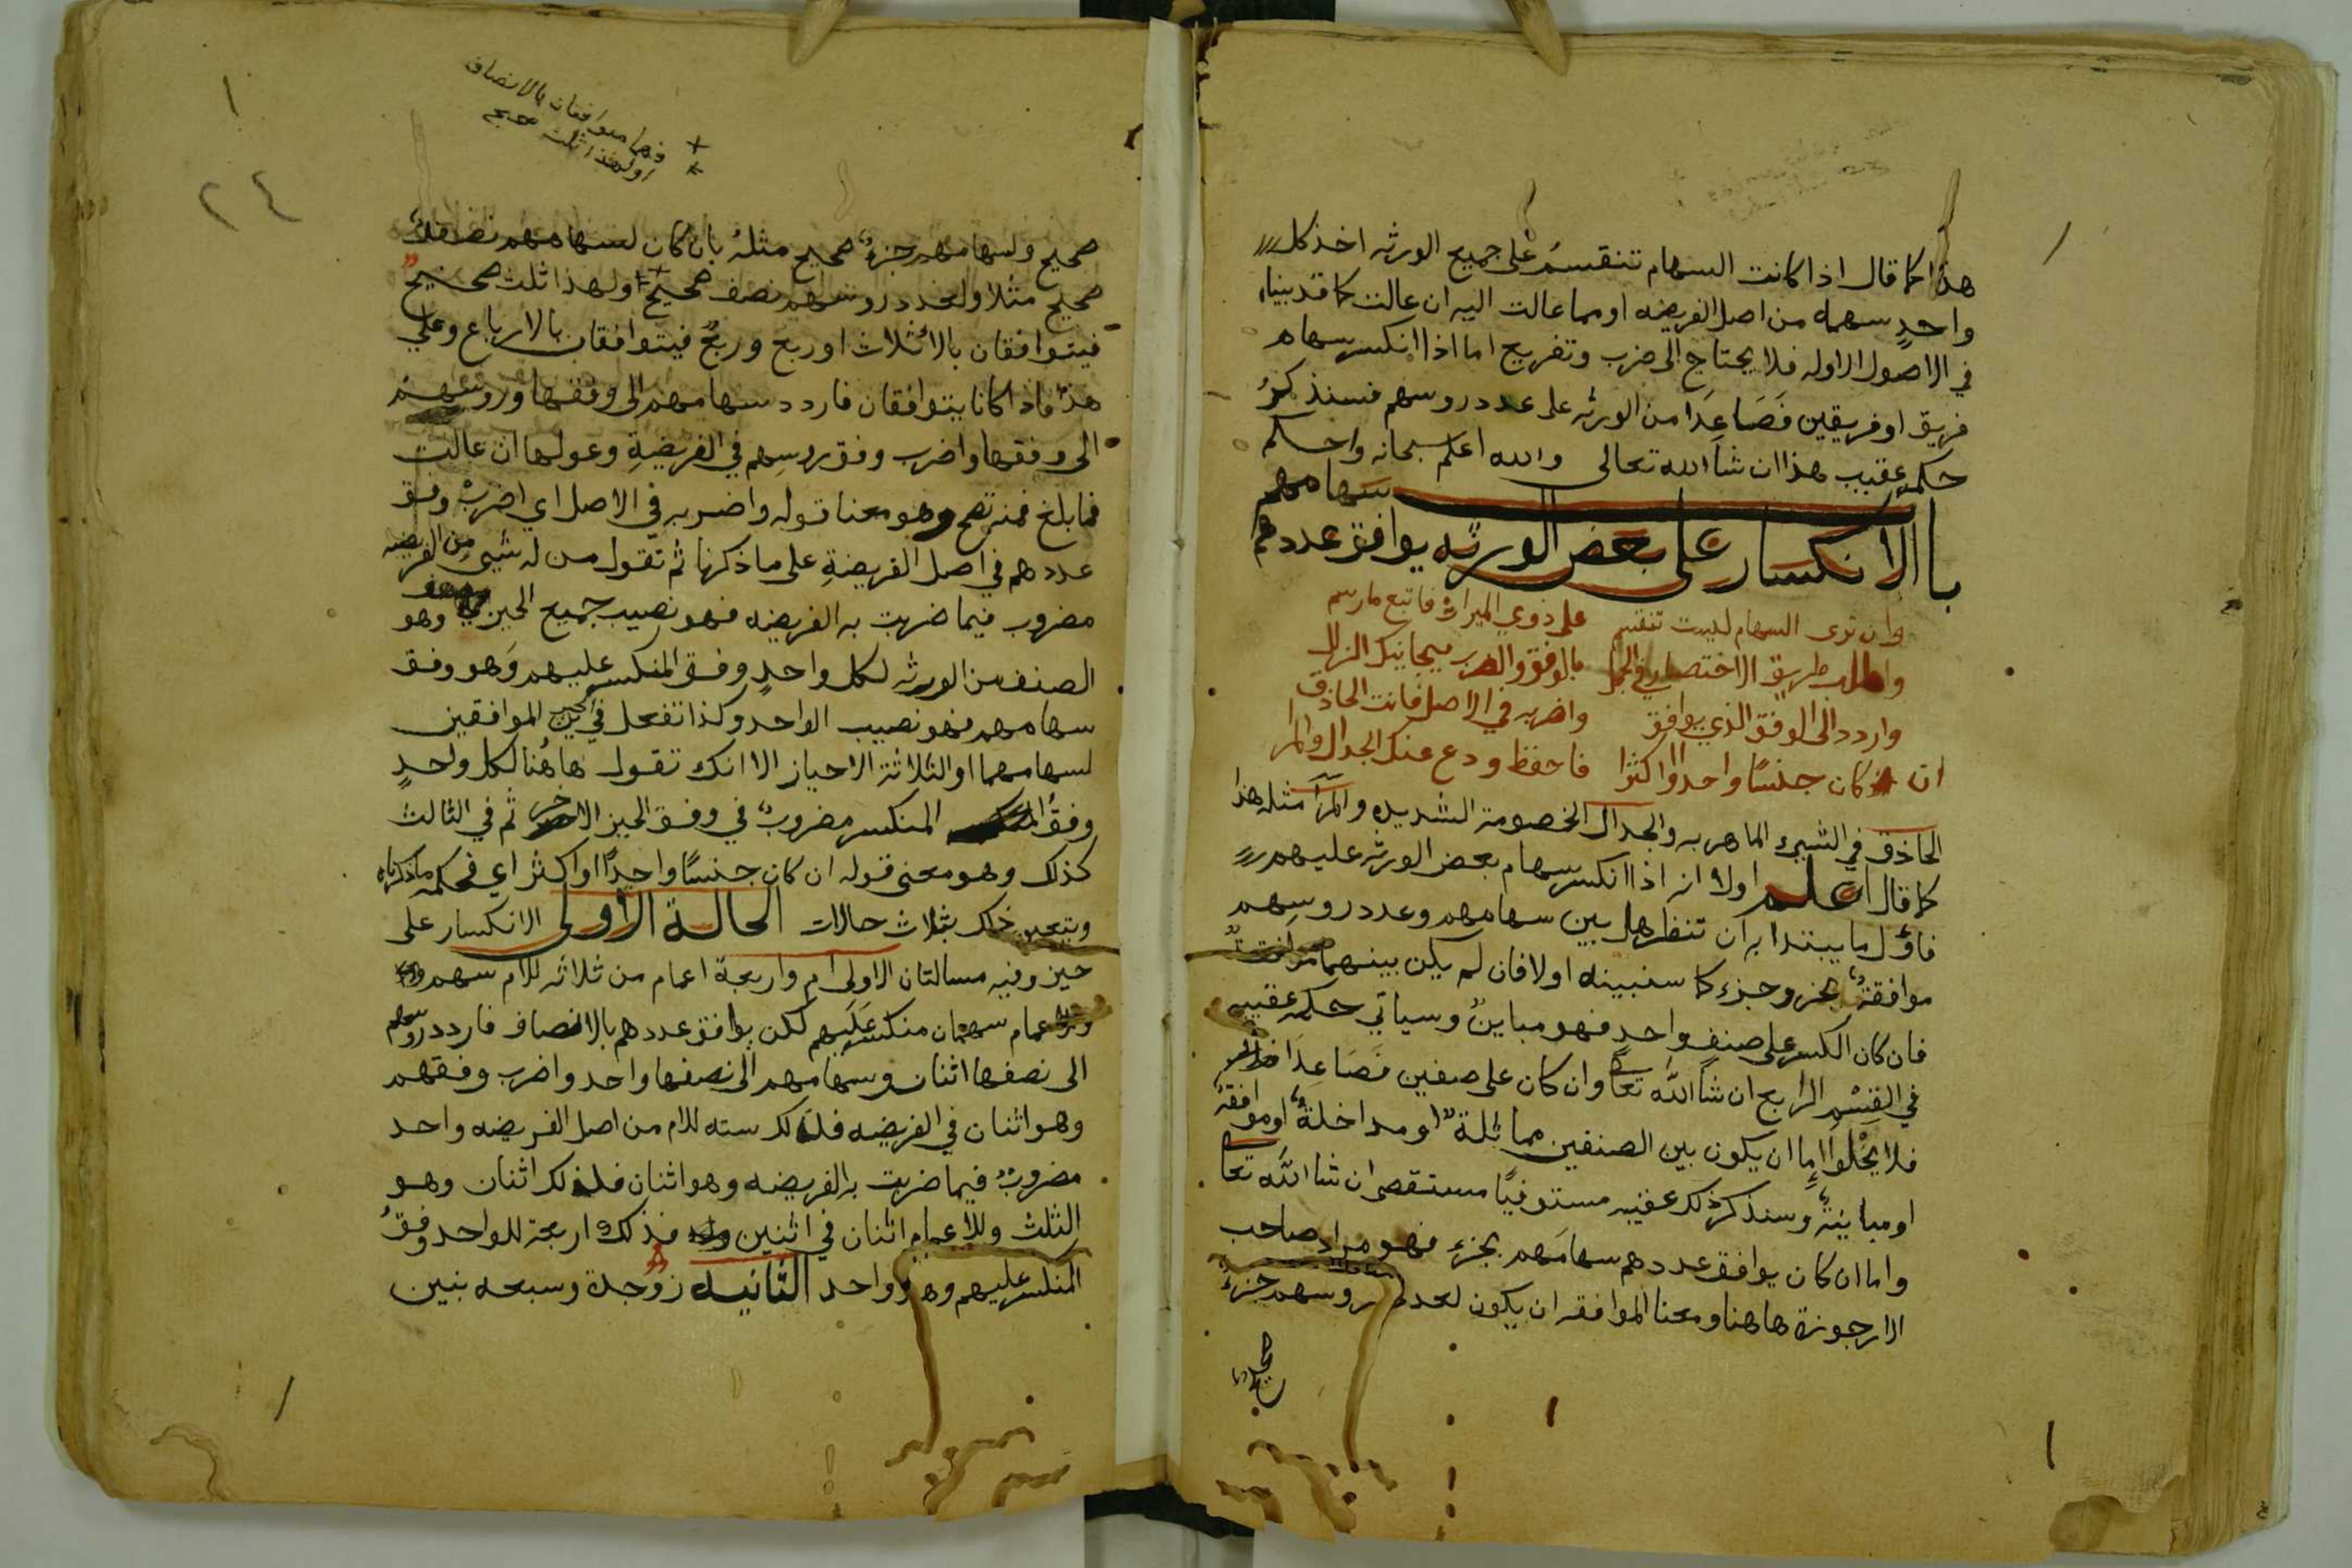 هذا كما قال اذا كانت السهام تنقسمُ على جميع الورثه اخذ كل
واحدٍ سهمه من اصل الفريضه او مما عالت اليه ان عالت كما قد بينا
في الاصول الاوله فلا يحتاج الى ضرب وتفريع اما اذا انكسر سهام
فريق او فريقين فَصَاعِدَا من الورثه على عدد روسهم فسنذكرُ
حكمه عقيب هذا ان شا الله تعالى والله اعلم سبحانه واحكم
باب الانكسار على بعض الورثه يوافق عددهم سهامهم
وان ترى السهام ليست تنقسم على ذوي الميراث فاتبع ما رسم
واطلب طريق الاختصار في العمل بالوفق والضرب يجانبك الزلل
واردد الى الوفق الذي يوافق واضربه في الاصل فانت الحاذق
ان كان جنسًا واحدا او اكثرا فاحفظ ودع عنك الجدال والمرا
الحاذق في الشيء الماهر به والجدال الخصومة الشديده والمرآ مثله هذا
كما قال اعلم اولا انه اذا انكسر سهام بعض الورثه عليهم
فاوّل ما يبتدا به ان تنظر هل بين سهامهم وعدد روسِهم
موافقةٌ بجزو جزء كما سنبينه اولا فان لم يكن بينهما موافقة
فان كان الكسر على صنفٍ واحدٍ فهو مباينٌ وسياتي حكمه عقيبه
في القِسْم الرابع ان شا الله تعا وان كان على صنفين فَصَاعِدَا
فلا يخْلوا اِما ان يكون بين الصنفين مماثلةٌ او مداخلةٌ او موافقةٌ
او مباينةٌ وسنذكر ذلك عقيبه مستوفيًا مستقصى ان شا الله تعا
واما ان كان يوافق عددهم سهامَهم بجزء فهو مراد صاحب
الارجوزة هاهنا ومعنا الموافقه ان يكون لعدد روسهم جزءٌ
صحيح
فهما متوافقان بالانصاف
او لهذا ثلث صحيح
٢٤
صحيح ولسهامهم جزءٌ صحيح مثلهُ بان كان لسهامهم نصفٌ
صحيح مثلا ولعدد روسهم نصف صحيح او لهذا ثلث صحيح
فيتوافقان بالاثلاث او ربع وربعٌ فيتوافقان بالارباع وعلى
هذا فاذا كانا يتوافقان فاردد سهامهم الى وفقها وروسهم
الى وفقها واضرب وفق روسِهم في الفريضةِ وعولها ان عالت
فما بلغ فمنه تصح وهو معنا قوله واضربه في الاصل اي اضرب وفق
عددهم في اصل الفريضةِ على ما ذكرنا ثم تقول من له شيى من الفريضه
مضروب فيما ضربت به الفريضه فهو نصيب جميع الحيز وهو
الصنف من الورثه لكل واحدٍ وفق المنكسر عليهم وَهو وفق
سهامهم فهو نصيب الواحد وكذا تفعل في الحيزين الموافقين
لسهامهما او الثلاثة الاحياز الا انك تقول هاهُنا لكل واحدٍ
وفقُ المنكسر مضروبٌ في وفق الحيز الاخر ثم في الثالث
كذلك وهو معنى قوله ان كان جنسًا واحدًا او اكثر اي فحكمه ما ذكرناه
ويتبين ذلك بثلاث حالات الحالة الاولى الانكسار على
حيز وفيه مسالتان الاولى ام واربعة اعمام من ثلاثه للام سهم
وللاعمام سهمان منكسر عَلَيهم لكن يوافق عددهم بالانصاف فاردد روسهم
الى نصفها اثنان وسهامهم الى نصفها واحد واضرب وفقهم
وهو اثنان في الفريضه فذلك سته للام من اصل الفريضه واحد
مضروبٌ فيما ضربت به الفريضه وهو اثنان فذلك اثنان وهو
الثلث وللاعمام اثنان في اثنين فذلك اربعة للواحد وفقُ
المنكسر عليهم وهو واحد الثانيه زوجة وسبعه بنين